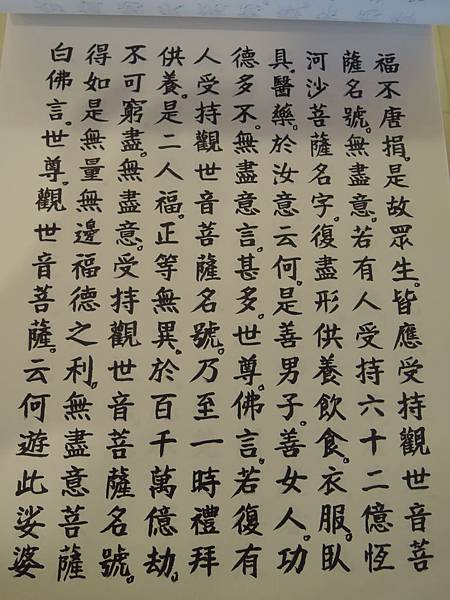 福不唐捐。是故眾生。皆應受持觀世音菩
薩名號。無盡意。若有人受持六十二億恆
河沙菩薩名字。復盡形供養飲食。衣服。臥
具。醫藥。於汝意云何。是善男子。善女人。功
德多不。無盡意言。甚多。世尊。佛言。若復有
人受持觀世音菩薩名號。乃至一時禮拜
供養。是二人福。正等無異。於百千萬億劫。
不可窮盡。無盡意。受持觀世音菩薩名號。
得如是無量無邊福德之利。無盡意菩薩
白佛言。世尊。觀世音菩薩。云何遊此娑婆